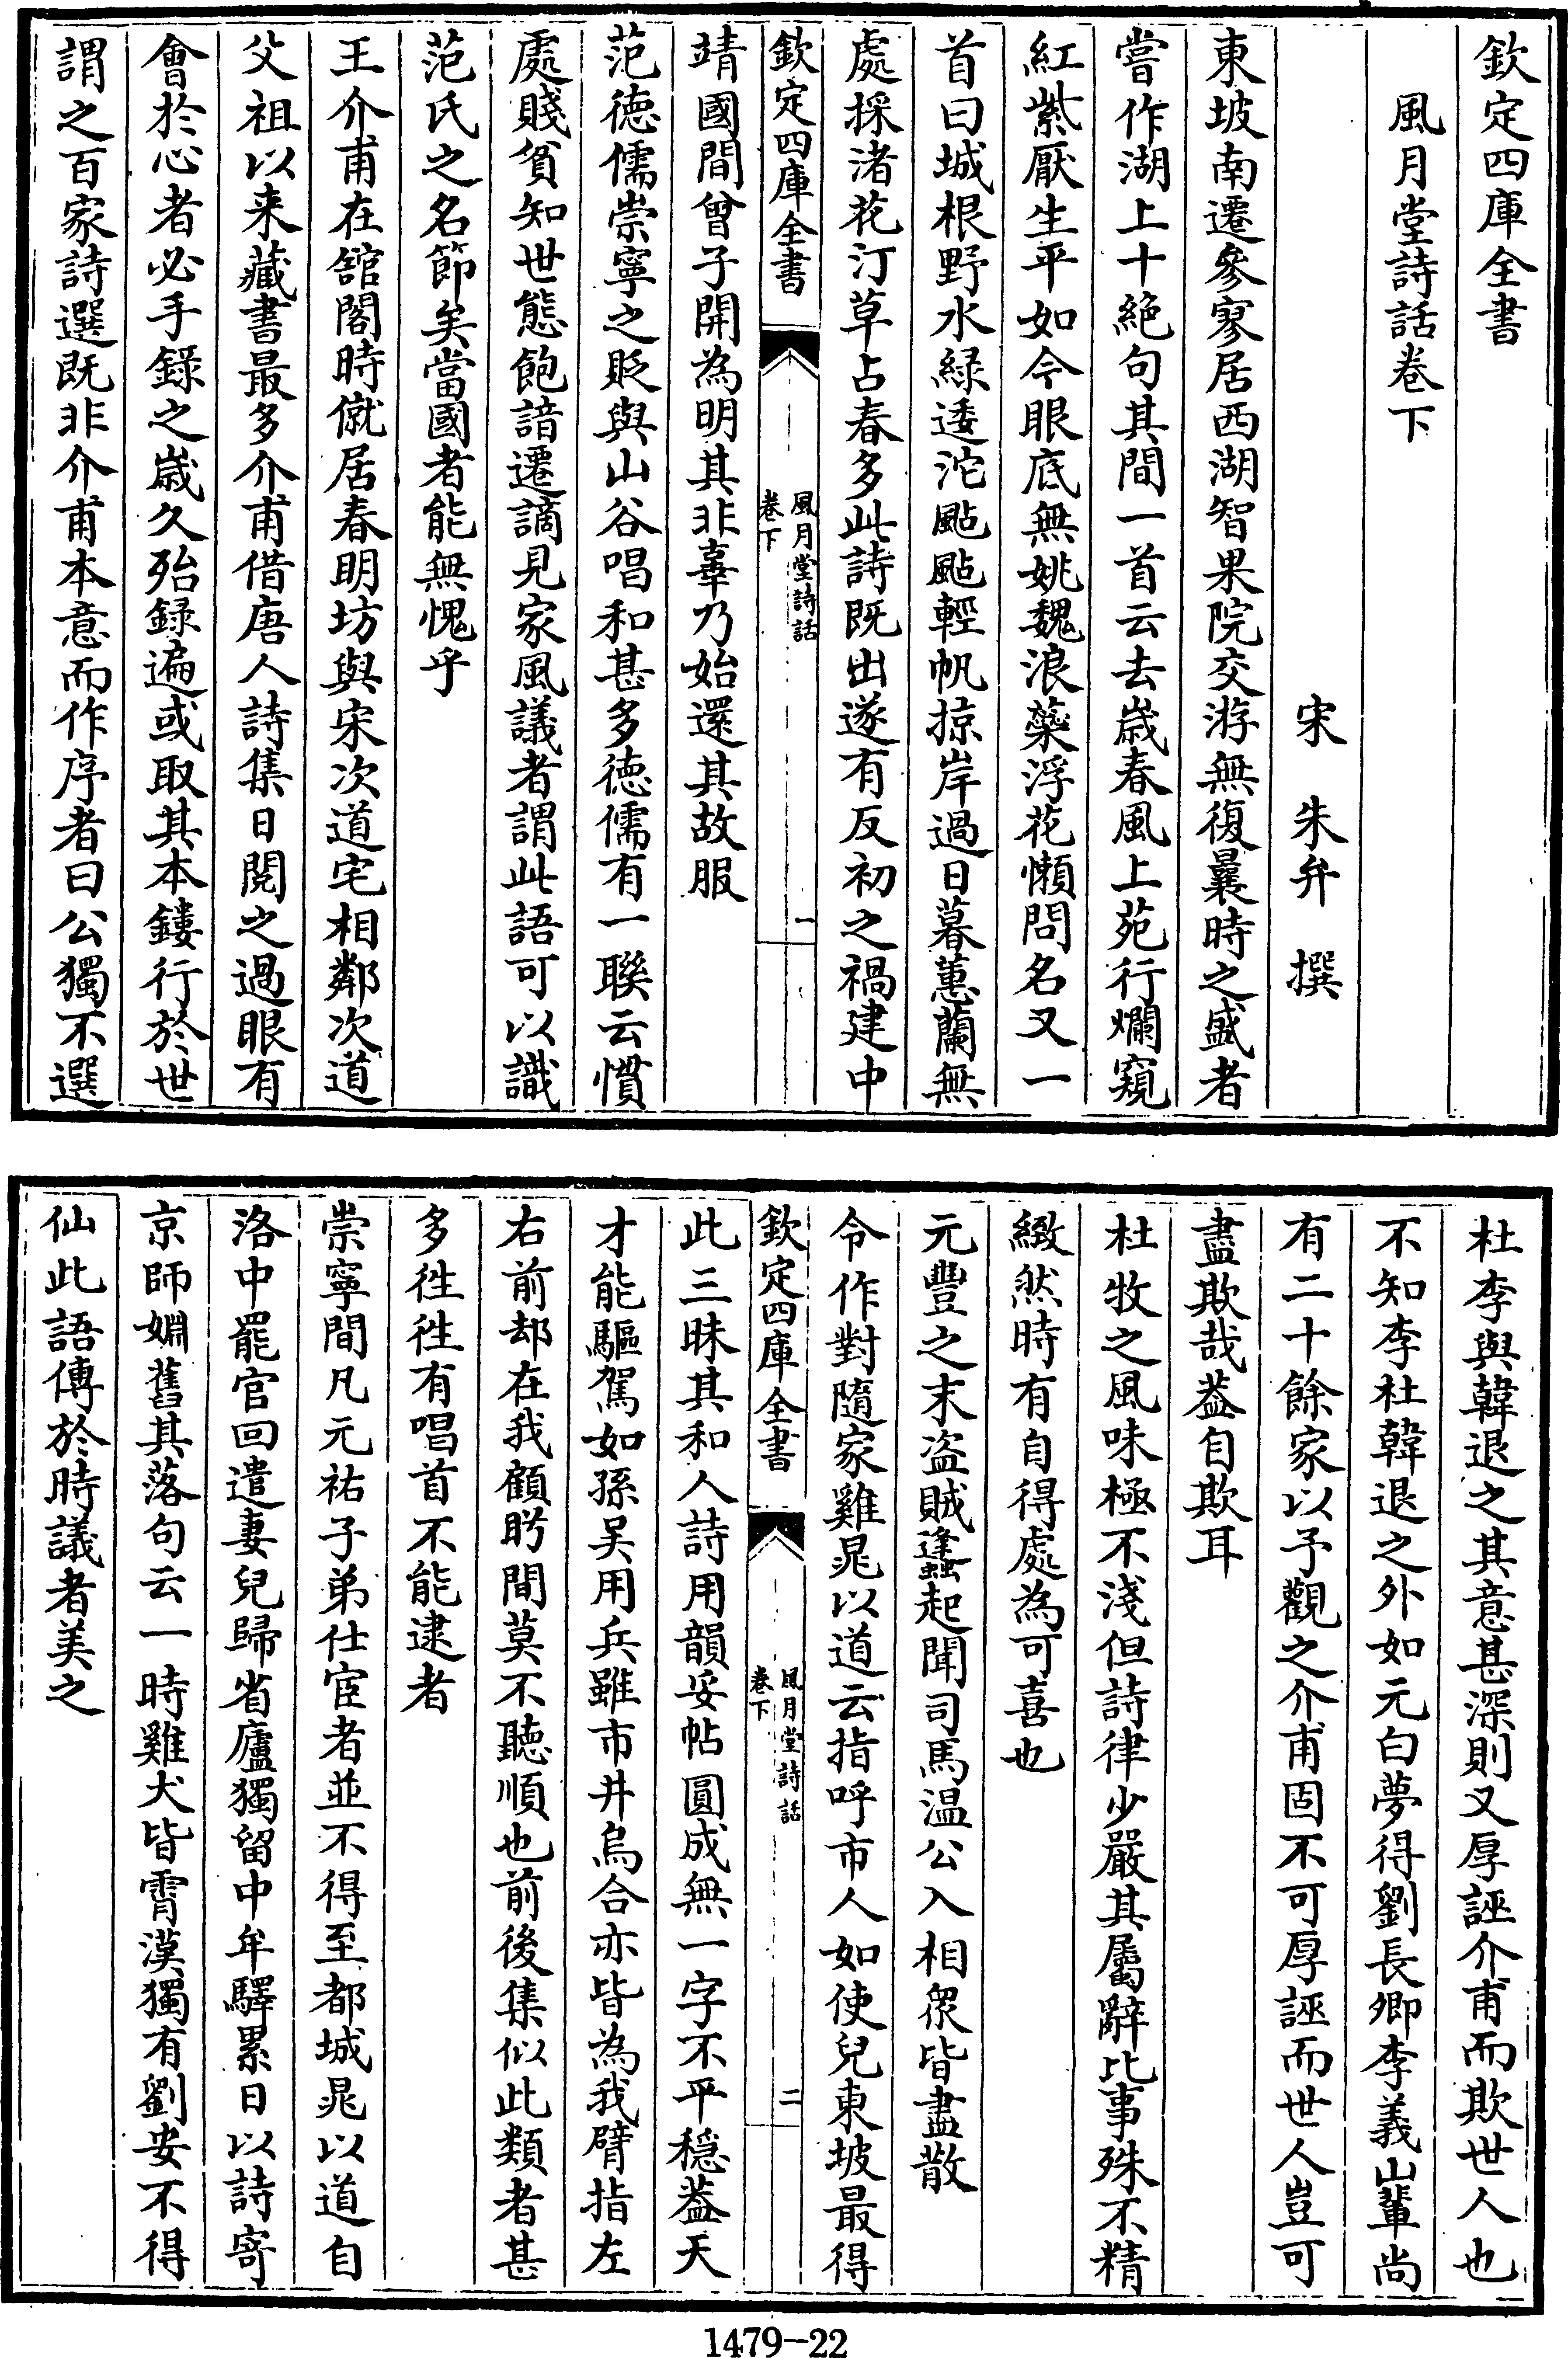 欽定四庫全書
風月堂詩話卷下
宋 朱弁 撰
東坡南遷參寥居西湖智果院交游無復曩時之盛者
嘗作湖上十絶句其間一首云去歲春風上苑行爛窺
紅紫厭生平如今眼底無姚魏浪蘂浮花懶問名又一
首曰城根野水緑逶沱颭颭輕帆掠岸過日暮蕙蘭無
處採渚花汀草占春多此詩既出遂有反初之禍建中
欽定四庫全書
風月堂詩話
卷下
一
靖國間曾子開為明其非辜乃始還其故服
范德儒崇寧之貶與山谷唱和甚多德儒有一聯云慣
處賤貧知世態飽諳遷謫見家風議者謂此語可以識
范氏之名節矣當國者能無愧乎
王介甫在舘閣時僦居春明坊與宋次道宅相鄰次道
父祖以来藏書最多介甫借唐人詩集日閱之過眼有
會於心者必手錄之歲久殆録遍或取其本鏤行於世
謂之百家詩選既非介甫本意而作序者曰公獨不選
杜李與韓退之其意甚深則又厚誣介甫而欺世人也
不知李杜韓退之外如元白夢得劉長卿李義山輩尚
有二十餘家以予觀之介甫固不可厚誣而世人豈可
盡欺哉葢自欺耳
杜牧之風味極不淺但詩律少嚴其屬辭比事殊不精
緻然時有自得處為可喜也
元豐之末盗賊蠭起聞司馬温公入相衆皆盡散
令作對隨家雞晁以道云指呼市人如使兒東坡最得
欽定四庫全書
風月堂詩話
卷下
二
此三昧其和人詩用韻妥帖圓成無一字不平穏葢天
才能驅駕如孫吴用兵雖市井烏合亦皆為我臂指左
右前却在我顧盻間莫不聽順也前後集似此類者甚
多徃徃有唱首不能逮者
崇寧間凡元祐子弟仕宦者並不得至都城晁以道自
洛中罷官回遣妻兒歸省廬獨留中牟驛累日以詩寄
京師婣舊其落句云一時雞犬皆霄漢獨有劉安不得
仙此語傳於時議者美之
1479-22